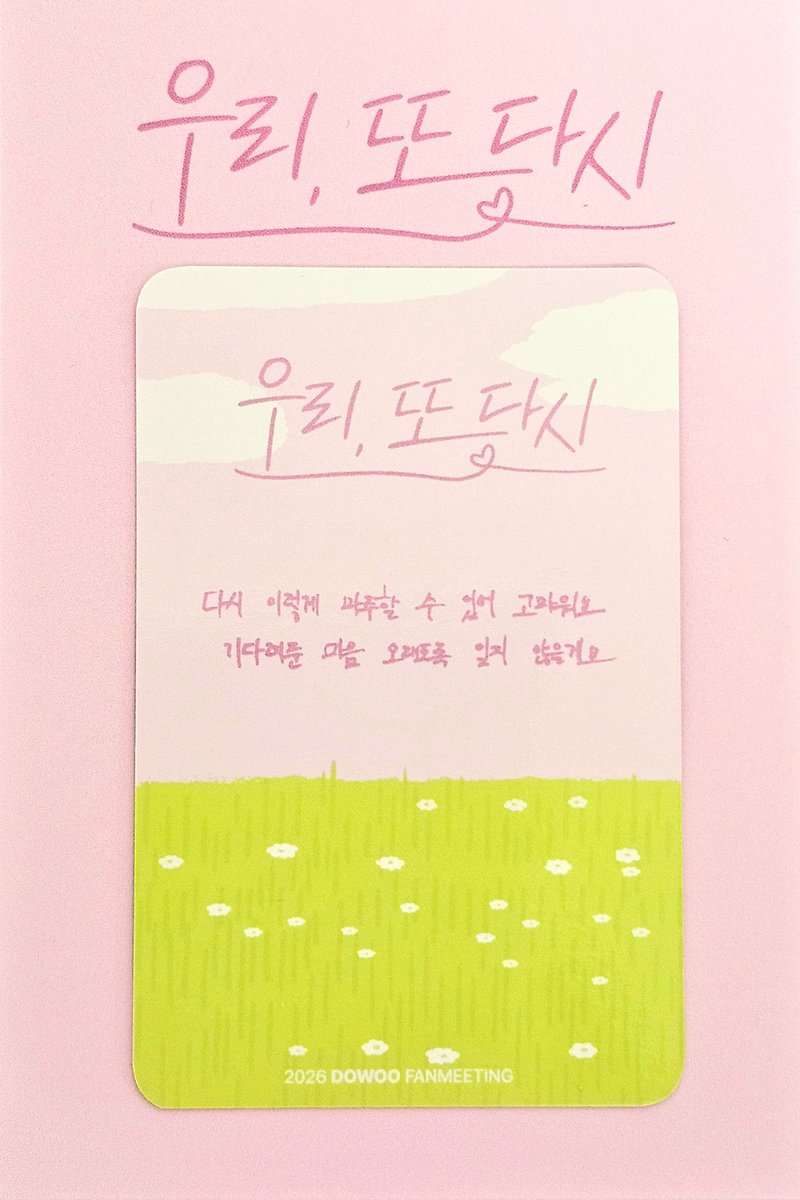 우리, 또 다시
우리, 또 다시
다시 이렇게 마주할 수 있어 고마워요
기다려준 마음 오래도록 잊지 않을게요
2026 DOWOO FANMEETING